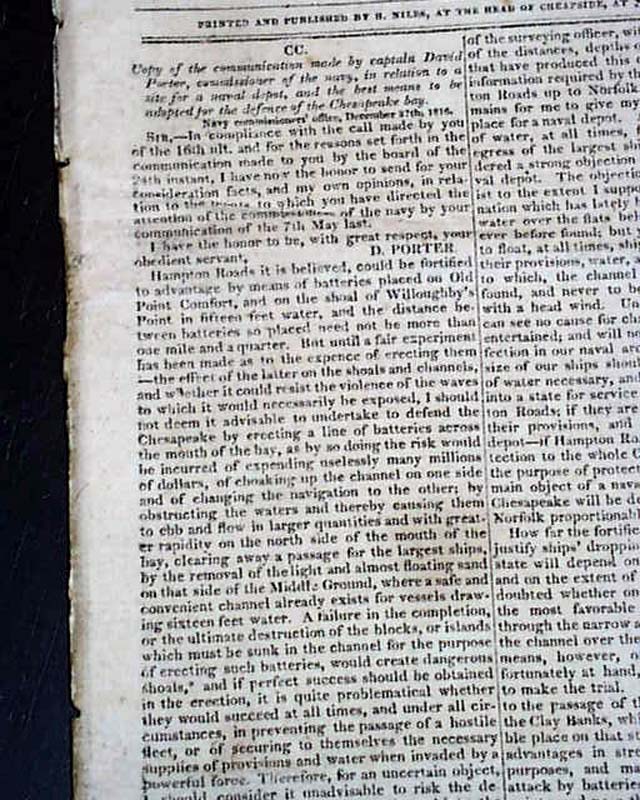 PRINTED AND PUBLISHED BY H. NILES, AT THE HEAD OF CHEAPSIDE, AT
CC.
Copy of the communication made by captain David
Porter, commissioner of the navy, in relation to a
site for a naval depot, and the best means to be
adopted for the defence of the Chesapeake bay.
Navy commissioners' office, December 27th, 1816.
SIR,—In compliance with the call made by you
of the 16th ult. and for the reasons set forth in the
communication made to you by the board of the
24th instant, I have now the honor to send for your
consideration facts, and my own opinions, in rela-
tion to the to which you have directed the
attention of the commissioners of the navy by your
communication of the 7th May last.
I have the honor to be, with great respect, your
obedient servant, D. PORTER
Hampton Roads it is believed, could be fortified
to advantage by means of batteries placed on Old
Point Comfort, and on the shoal of Willoughby's
Point in fifteen feet water, and the distance be-
tween batteries so placed need not be more than
one mile and a quarter. But until a fair experiment
has been made as to the expence of erecting them
—the effect of the latter on the shoals and channels,
and whether it could resist the violence of the waves
to which it would necessarily be exposed, I should
not deem it advisable to undertake to defend the
Chesapeake by erecting a line of batteries across
the mouth of the bay, as by so doing the risk would
be incurred of expending uselessly many millions
of dollars, of choaking up the channel on one side
and of changing the navigation to the other; by
obstructing the waters and thereby causing them
to ebb and flow in larger quantities and with great-
er rapidity on the north side of the mouth of the
bay, clearing away a passage for the largest ships,
by the removal of the light and almost floating sand
on that side of the Middle Ground, where a safe and
convenient channel already exists for vessels draw-
ing sixteen feet water. A failure in the completion,
or the ultimate destruction of the blocks, or islands
which must be sunk in the channel for the purpose
of erecting such batteries, would create dangerous
shoals,* and if perfect success should be obtained
in the erection, it is quite problematical whether
they would succeed at all times, and under all cir-
cumstances, in preventing the passage of a hostile
fleet, or of securing to themselves the necessary
supplies of provisions and water when invaded by a
powerful force. Therefore, for an uncertain object,
I should consider it unadvisable to risk the de
of the surveying officer, wi
of the distances, depths
that have produced this
information required by th
ton Roads up to Norfolk
mains for me to give my
place for a naval depot.
of water, at all times,
egress of the largest shi
dered a strong objection
val depot. The objectio
ist to the extent I suppo
nation which has lately
water over the flats bel
ever before found; but
to float, at all times, shi
their provisions, water, a
to which, the channel
found, and never to be
with a head wind. Un
can see no cause for cha
entertained; and will no
fection in our naval arc
size of our ships shoul
of water necessary, and
into a state for service
ton Roads; if they are
their provisions, and
depot—if Hampton Ro
tection to the whole C
the purpose of protec
main object of a nava
Chesapeake will be d
Norfolk proportionabl
How far the fortific
justify ships' droppin
state will depend on
and on the extent of
doubted whether on
the most favorable
through the narrow a
the channel over the
means, however, o
fortunately at hand,
to make the trial.
to the passage of t
the Clay Banks, wh
ble place on that st
advantages in stre
purposes, and ma
attack by batteries